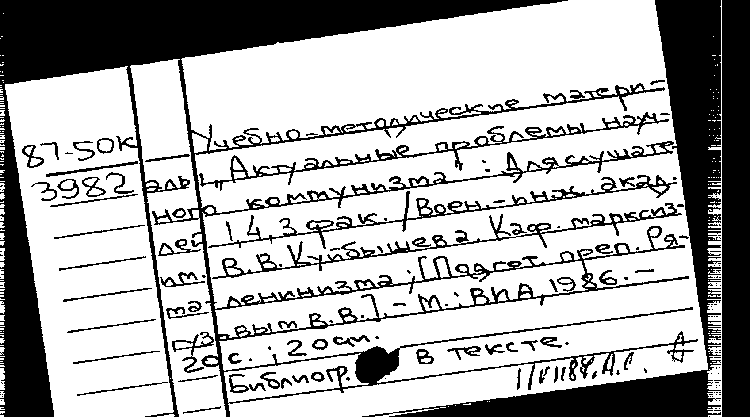 87-50к
3982
Учебно-методические матери=
алы „Актуальные проблемы науч-
ного коммунизма" : Для слушате-
лей 1, 4, 3 фак. / Воен.-инж. акад.
им. В.В. Куйбышева. Каф. марксиз-
ма-ленинизма ; [Подгот. преп. Ря-
бузовым В.В.]. - М. : ВИА, 1986. -
20 с. ; 20 см.
Библиогр. в тексте.